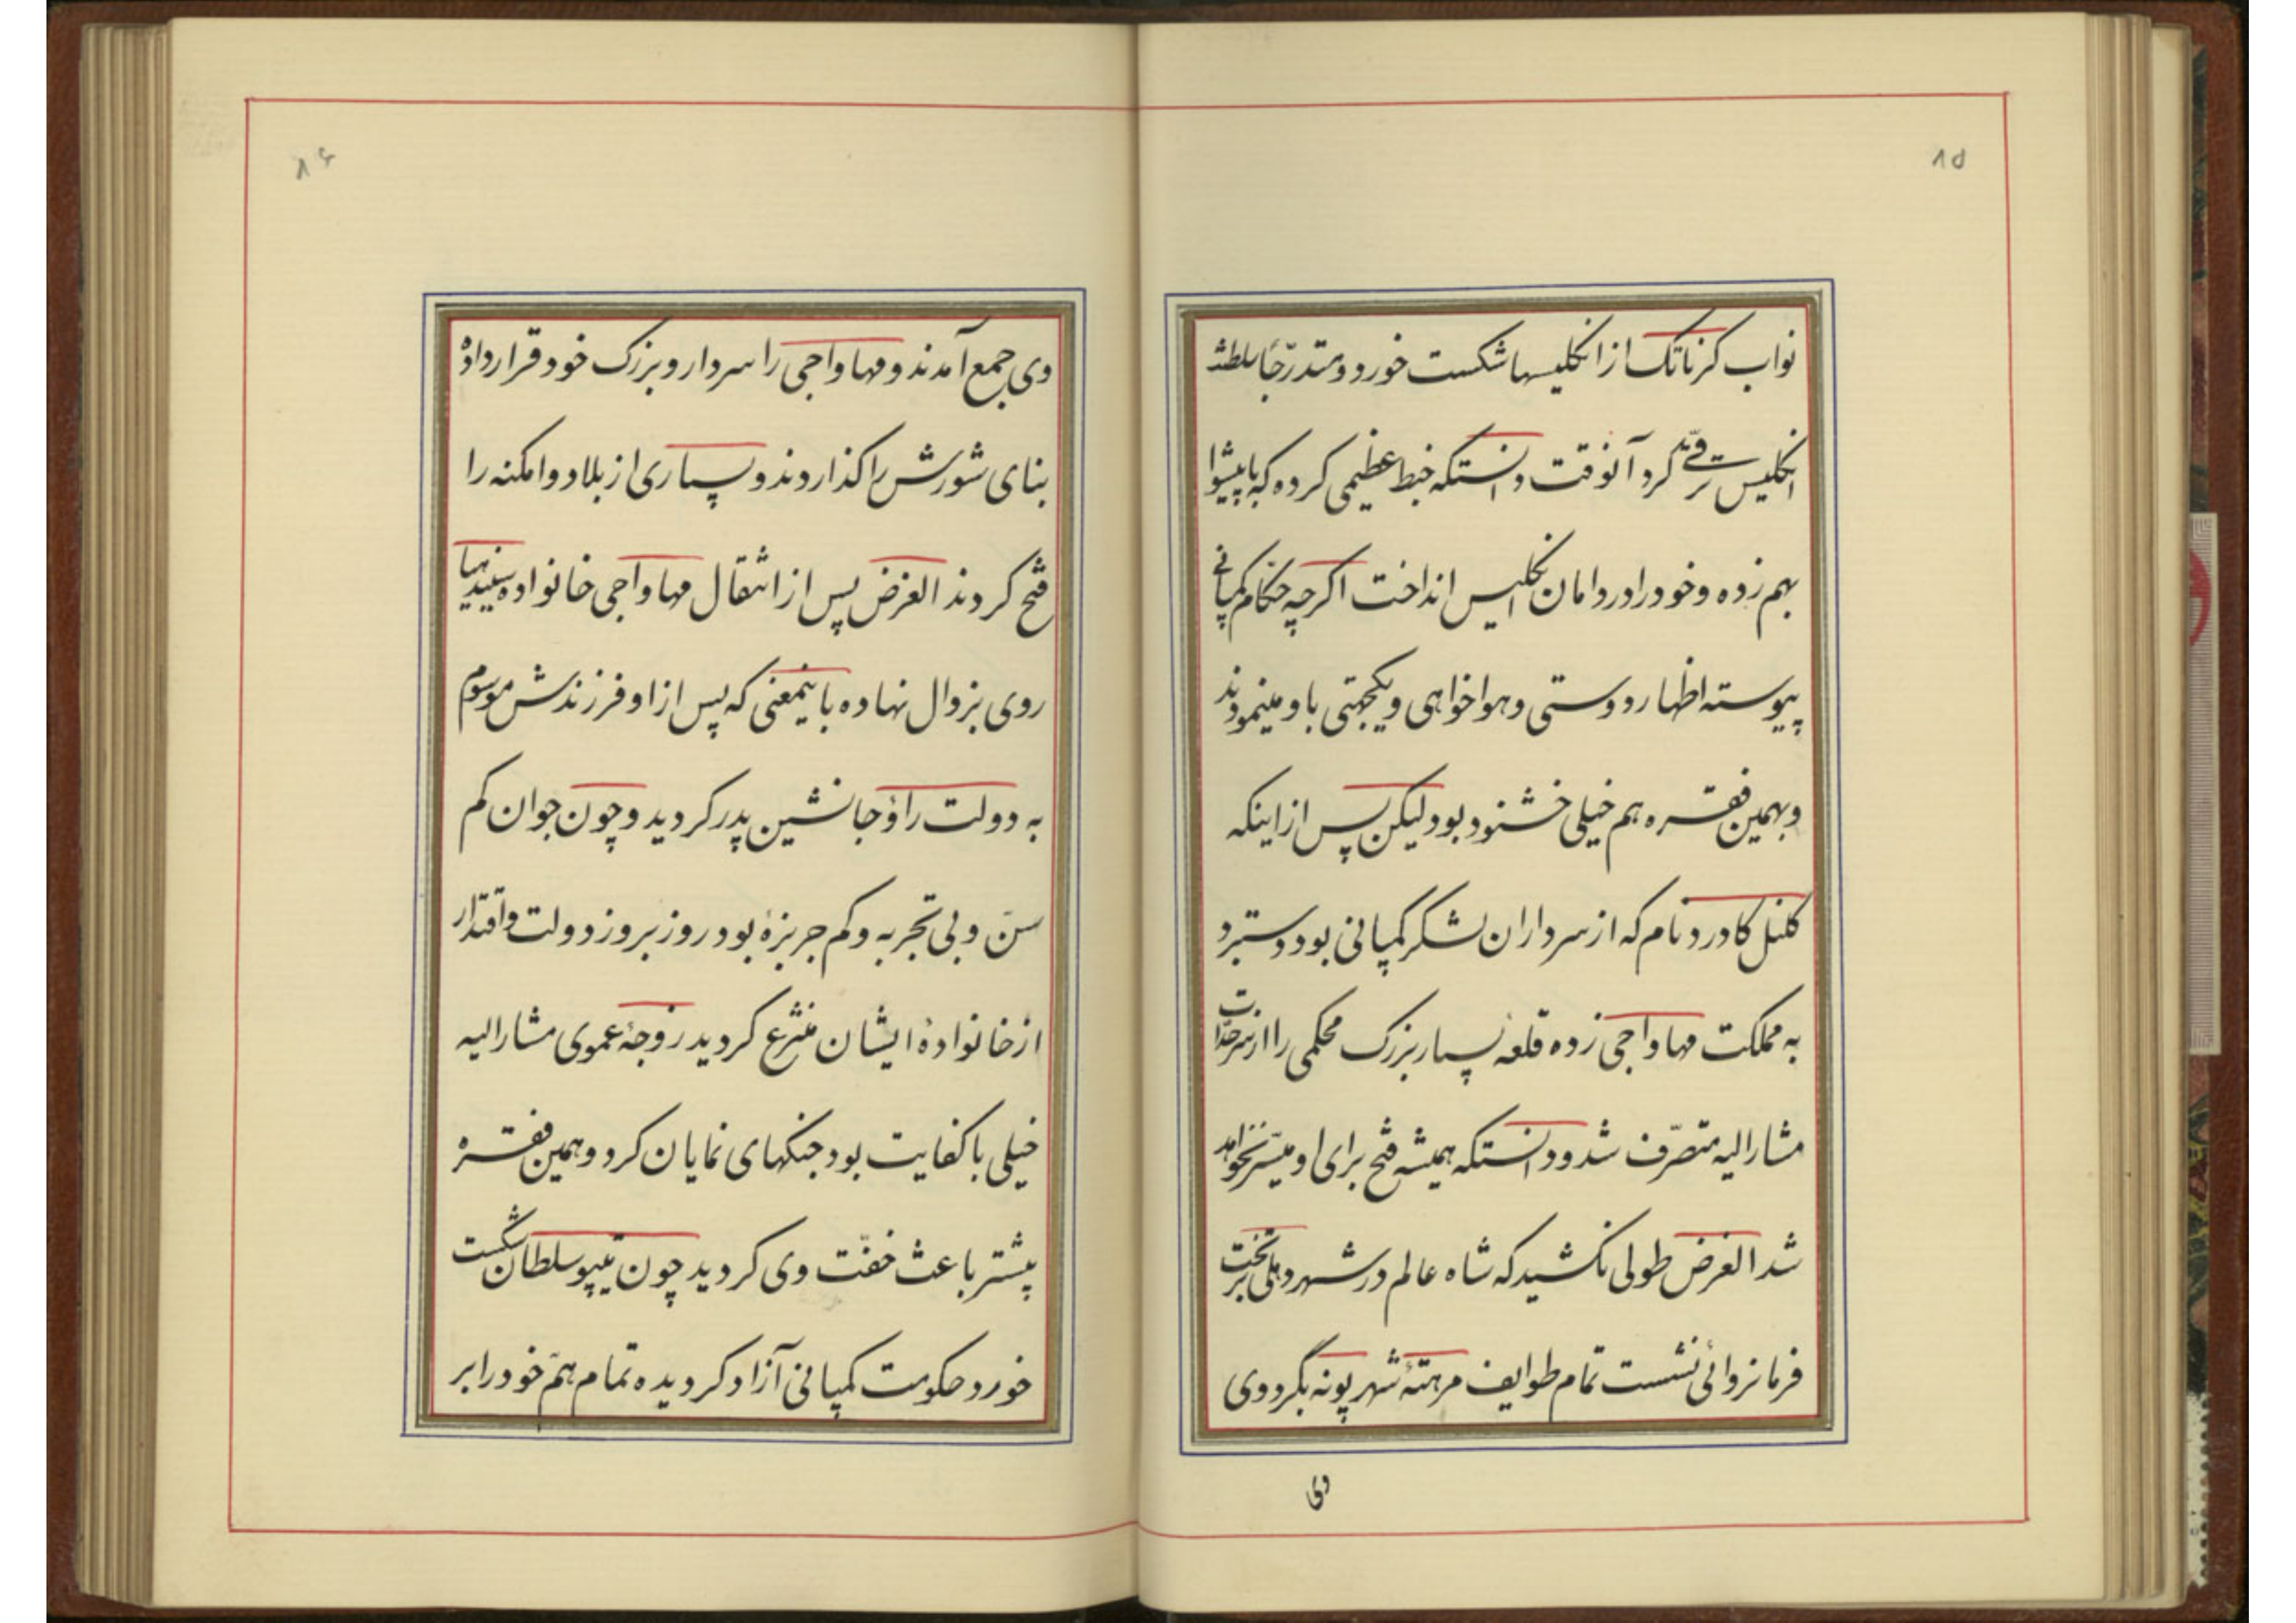 ۸۵
نواب کرناتک از انگلیسها شکست خورد و متدرّجاً سلطنت
انگلیس ترقی کرد آنوقت دانستکه خبط عظیمی کرده که با پیشوا
بهم زده و خود را در دامان انگلیس انداخت اکرچه حکام کمپانی
پیوسته اظهار دوستی و هواخواهی و یکجهتی با او مینمودند
و بهمین فقره هم خیلی خشنود بود لیکن پس از اینکه
کلنل کادرد نام که از سرداران لشکر کمپانی بود دستبرد
به مملکت مهاواجی زده قلعه بسیار بزرک محکمی را از سرحدات
مشارالیه متصرّف شد و دانستکه همیشه فتح برای او میسّر نخواهد
شد الغرض طولی نکشید که شاه عالم در شهر دهلی بر تخت
فرمانروائی نشست تمام طوایف مرهتهٔ شهر پونه بگرد وی
وی
۸۶
وی جمع آمدند و مهاواجی را سردار و بزرک خود قرار داده
بنای شورش را کذاردند و بسیاری از بلاد و امکنه را
فتح کردند الغرض پس از انتقال مهاواجی خانواده سیندیها
روی بزوال نهاده باینمعنی که پس از او فرزندش موسوم
به دولت راؤ جانشین پدر کردید و چون جوان کم
سنّ و بی تجربه و کم جربزهٔ بود روز بروز دولت و اقتدار
از خانوادهٔ ایشان منتزع کردید زوجهٔ عموی مشارالیه
خیلی با کفایت بود جنکهای نمایان کرد و همین فقره
بیشتر باعث خفّت وی کردید چون تیپو سلطان شکست
خورد حکومت کمپانی آزاد کردیده تمام همّ خود را بر